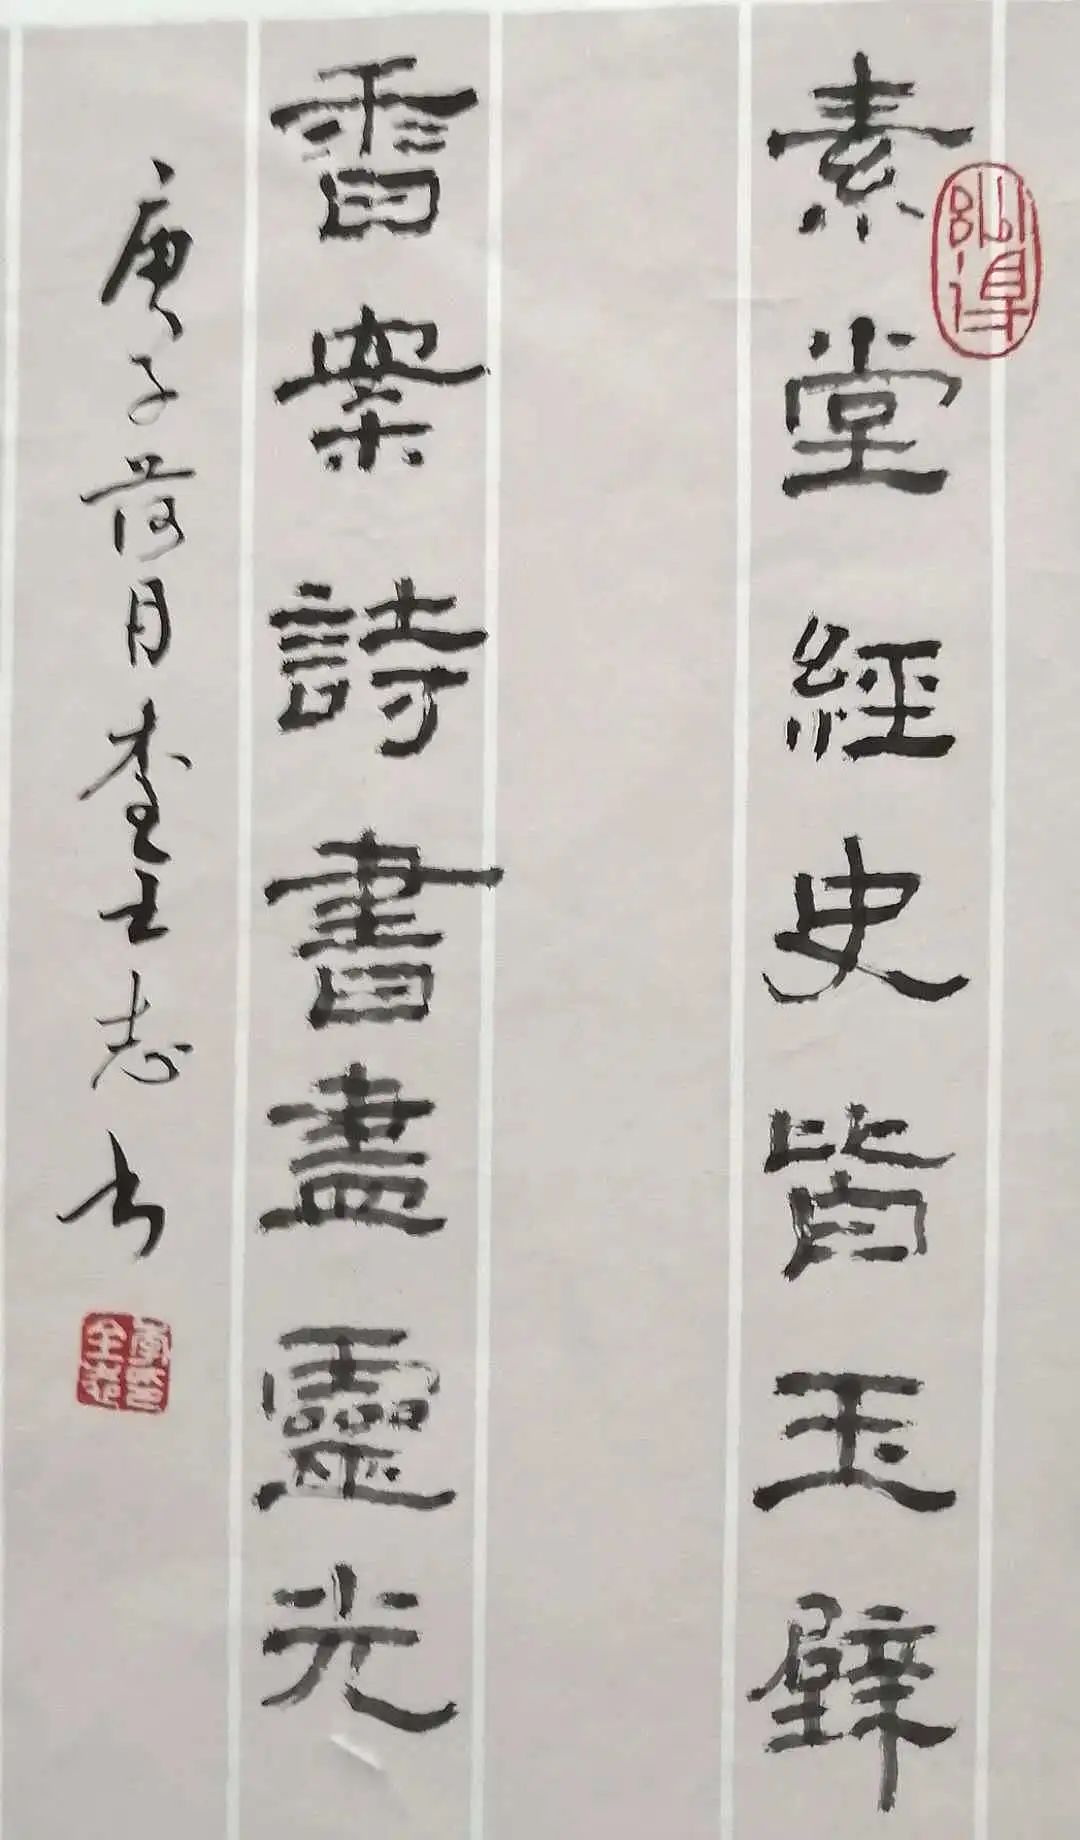 素堂經史皆玉璧
香案詩書盡靈光
庚子荷月李士志书